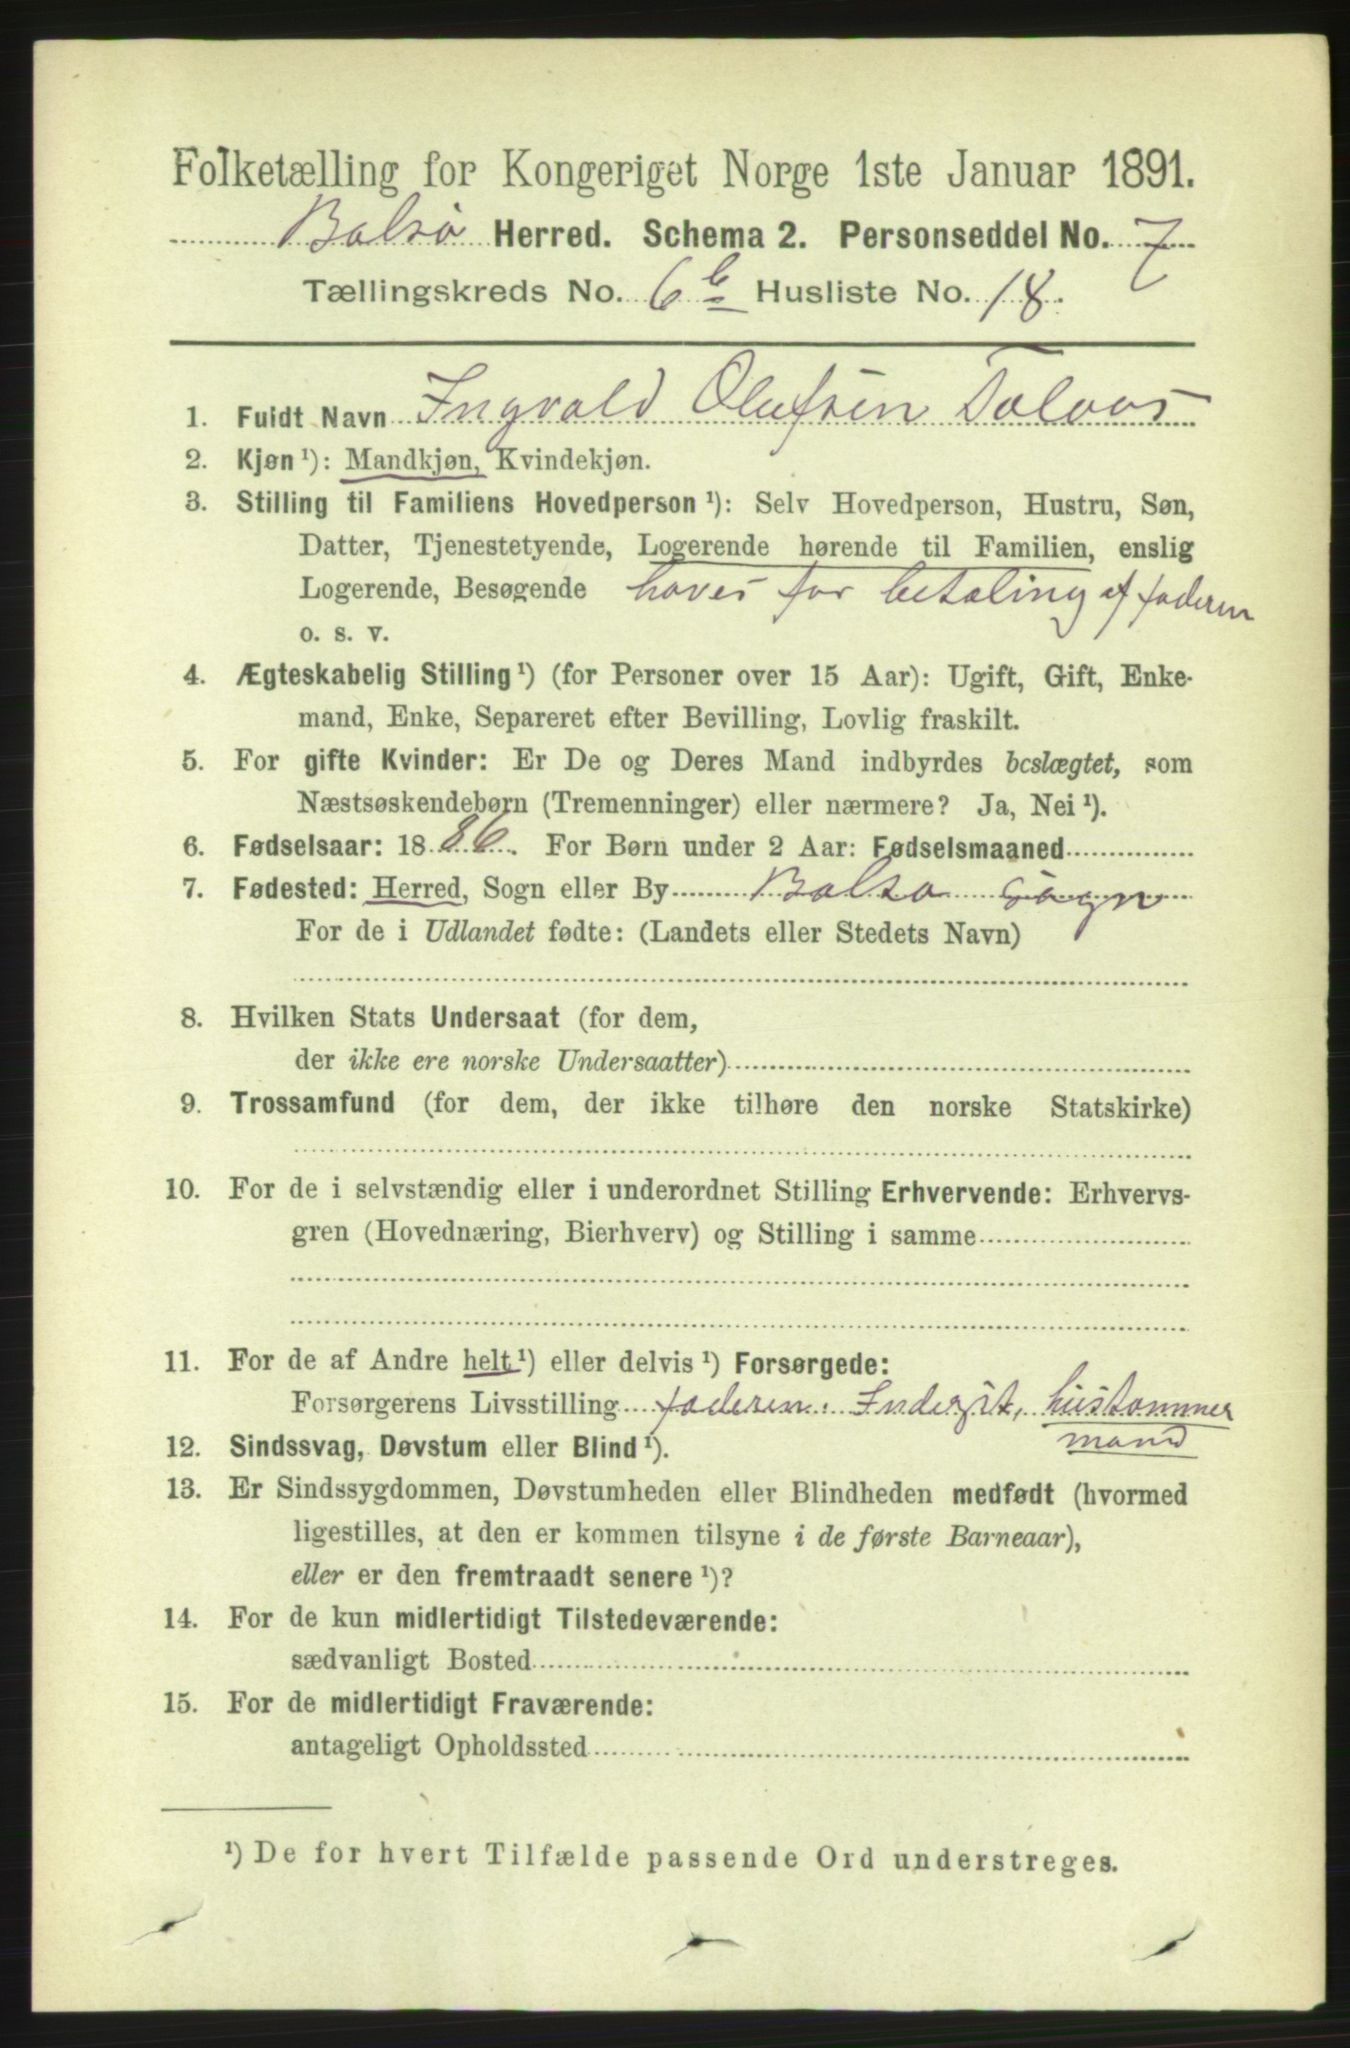 Folketælling for Kongeriget Norge 1ste Januar 1891.
Bolsø Herred. Schema 2. Personseddel No. 7
Tællingskreds No. 6 b Husliste No. 18.
1. Fuldt Navn Ingvald Olufsen Talaas
2. Kjøn ¹): Mandkjøn, Kvindekjøn.
3. Stilling til Familiens Hovedperson ¹): Selv Hovedperson, Hustru, Søn,
Datter, Tjenestetyende, Logerende hørende til Familien, enslig
Logerende, Besøgende haves for betaling af faderen
o. s. v.
4. Ægteskabelig Stilling ¹) (for Personer over 15 Aar): Ugift, Gift, Enke-
mand, Enke, Separeret efter Bevilling, Lovlig fraskilt.
5. For gifte Kvinder: Er De og Deres Mand indbyrdes beslægtet, som
Næstsøskendebørn (Tremenninger) eller nærmere? Ja, Nei ¹).
6. Fødselsaar: 1886. For Børn under 2 Aar: Fødselsmaaned
7. Fødested: Herred, Sogn eller By Bolsø Sogn
For de i Udlandet fødte: (Landets eller Stedets Navn)
8. Hvilken Stats Undersaat (for dem,
der ikke ere norske Undersaatter)
9. Trossamfund (for dem, der ikke tilhøre den norske Statskirke)
10. For de i selvstændig eller i underordnet Stilling Erhvervende: Erhvervs-
gren (Hovednæring, Bierhverv) og Stilling i samme
11. For de af Andre helt ¹) eller delvis ¹) Forsørgede:
Forsørgerens Livsstilling faderen. Inderst, hustømmer
mand
12. Sindssvag, Døvstum eller Blind ¹).
13. Er Sindssygdommen, Døvstumheden eller Blindheden medfødt (hvormed
ligestilles, at den er kommen tilsyne i de første Barneaar),
eller er den fremtraadt senere ¹)?
14. For de kun midlertidigt Tilstedeværende:
sædvanligt Bosted
15. For de midlertidigt Fraværende:
antageligt Opholdssted
¹) De for hvert Tilfælde passende Ord understreges.